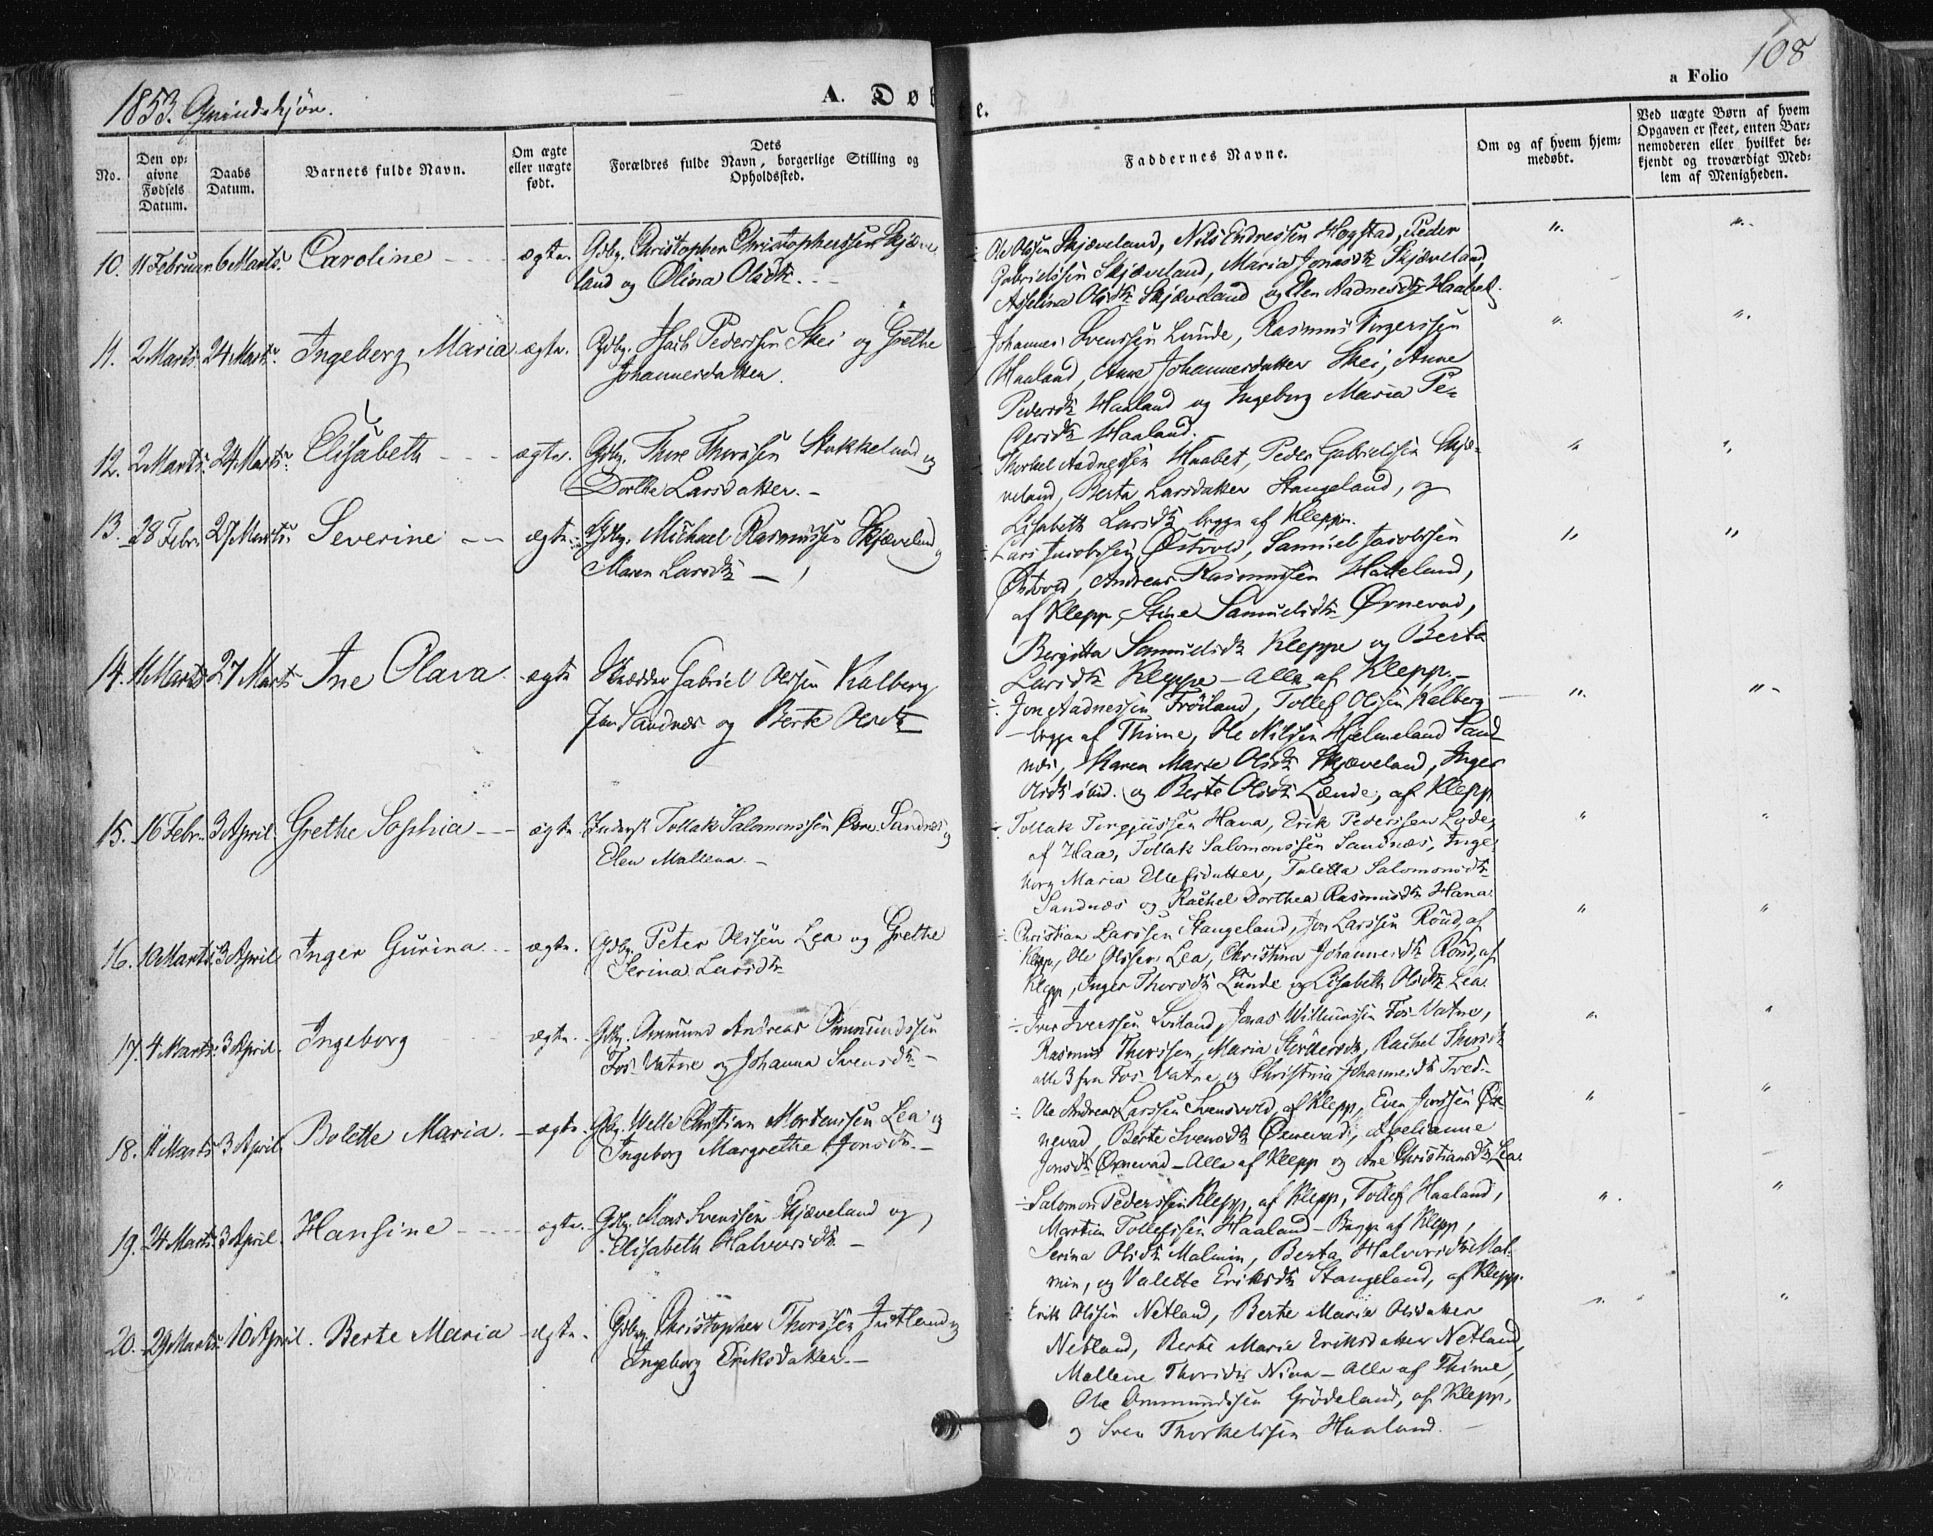 1853. Qvindekjøn.
A. Døb
e.
a Folio 108
No.
Den op-
givne
Fødsels
Datum.
Daabs
Datum.
Barnets fulde Navn.
Om ægte
eller uægte
født.
Dets
Forældres fulde Navn, borgerlige Stilling og
Opholdssted.
Faddernes Navne.
Om og af hvem hjem-
medøbt.
Ved uægte Børn af hvem
Opgaven er skeet, enten Bar-
nemoderen eller hvilket be-
kjendt og troværdigt Med-
lem af Menigheden.
10. 11 Februar 6 Marts. Caroline - ægte. Gdbg. Christopher Christopherssen Skjæve
land og Olina Olsdtr.
Ole Olssen Skjæveland, Nils Endressen Hogstad, Peder
Gabrielssen Skjæveland, Maria Jonasdtr Skjæveland,
Olsdtr Skjæveland og Elen Aadnesdtr Haabet.
11. 2 Marts 24 Marts. Ingeberg Maria ægte. Gdbg. Pederssen Skei og Grethe
Johannesdatter.
Johannes Svenssen Lunde, Rasmus Torgerssen
Haaland, Anne Johannesdatter Skei, Anne
Pedersdtr Haaland og Ingeborg Maria Pe-
dersdtr Haaland.
12. 2 Marts 24 Marts. Elisabeth - ægte. Gdbg. Thore Thorssen Stokkeland og
Dorthe Larsdatter. -
Thorkel Aadnessen Haabet, Peder Gabrielssen Skjæ-
veland, Berta Larsdatter Stangeland, og
Lisabeth Larsdtr begge af Klepp.
13. 28 Febr. 27 Marts. Severine - ægte. Gdbg. Michael Rasmussen Skjæveland og
Maren Larsdtr -
Lars Jacobssen Østvold, Samuel Jacobssen
Østvold, Andreas Rasmussen Hatteland,
af Klepp, Stine Samuelsdtr Ørnevad,
Bergitta Samuelsdtr Kleppe og Berta
Larsdtr Kleppe - Alle af Klepp. -
14. 11 Marts 27 Marts Ine Olava. ægte Skrædder Gabriel Olssen Kalberg,
Sandnæs og Berte Olsdtr
Jon Aadnessen Frøiland, Tollef Olssen Kalberg
- begge af Thime, Ole Nilssen Hjelmeland Sand-
næs, Karen Marie Olsdtr Skjæveland, Inger
Olsdtr ibid. og Berte Olsdtr Lænde, af Klepp
15. 16 Febr. 3 April. Grethe Sophia - ægte. Inderst Tollak Salomonssen Øvre Sandnæs og
Elen Mallena. -
Tollak Torgjussen Hana, Erik Pederssen Lode,
af Haa, Tollak Salomonssen Sandnæs, Inge-
borg Maria Ellefsdatter, Taletta Salomonsdtr
Sandnæs og Rachel Dorthea Rasmusdtr Hana.
16. 10 Marts. 3 April. Inger Gurina - ægte. Gdbg. Peter Olssen Lea og Grethe
Serina Larsdtr
Christian Larssen Stangeland, Jon Larssen Roud, af
Klepp, Ole Olssen Lea, Christina Johannesdtr Roud, af
Klepp, Inger Thorsdtr Lunde og Lisabeth Olsdtr Lea.
17. 4 Marts. 3 April. Ingeborg ægte. Gdbg. Ommund Andreas Ommundssen
Fos-Vatne og Johanna Svensdtr -
Iver Iverssen Lviland, Jonas Willumssen Fos-Vatne,
Rasmus Thorssen, Maria, Rachel Thorsdtr
alle 3 fra Fos-Vatne, og Christina Johannesdtr Tved. -
18. 11 Marts 3 April. Bolette Maria. - ægte. Gdbg. Welle Christian Mortenssen Lea og
Ingeborg Margrethe Jonsdtr. -
Ole Andreas Larssen Svensvold, af Klepp, Even Jonssen Ør-
nevad, Berte Svensdtr Ørnevad,
Jonsdtr Ørnevad - Alle af Klepp og Ane Christiansdtr Lea.
19. 24 Marts. 3 April. Hansine - ægte. Gdbg. Mons Svenssen Skjæveland og
Elisabeth Halvorsdtr -
Salomon Pederssen Klepp, af Klepp, Tollef Haaland,
Martin Tollefssen Haaland - Begge af Klepp,
Serina Olsdtr Malmin, Berta Halvorsdtr Mal-
min, og Valette Eriksdtr Stangeland, af Klepp.
20. 29 Marts. 10 April. Berte Maria ægte. Gdbg. Christopher Thorssen Justland og
Ingeborg Eriksdatter. -
Erik Olssen Netland, Berte Marie Olsdatter
Netland, Berte Marie Eriksdatter Netland,
Mallene Thorsdtr Niva - Alle af Thime,
Ole Ommundssen Grødeland, af Klepp,
og Sven Thorkelssen Haaland. -